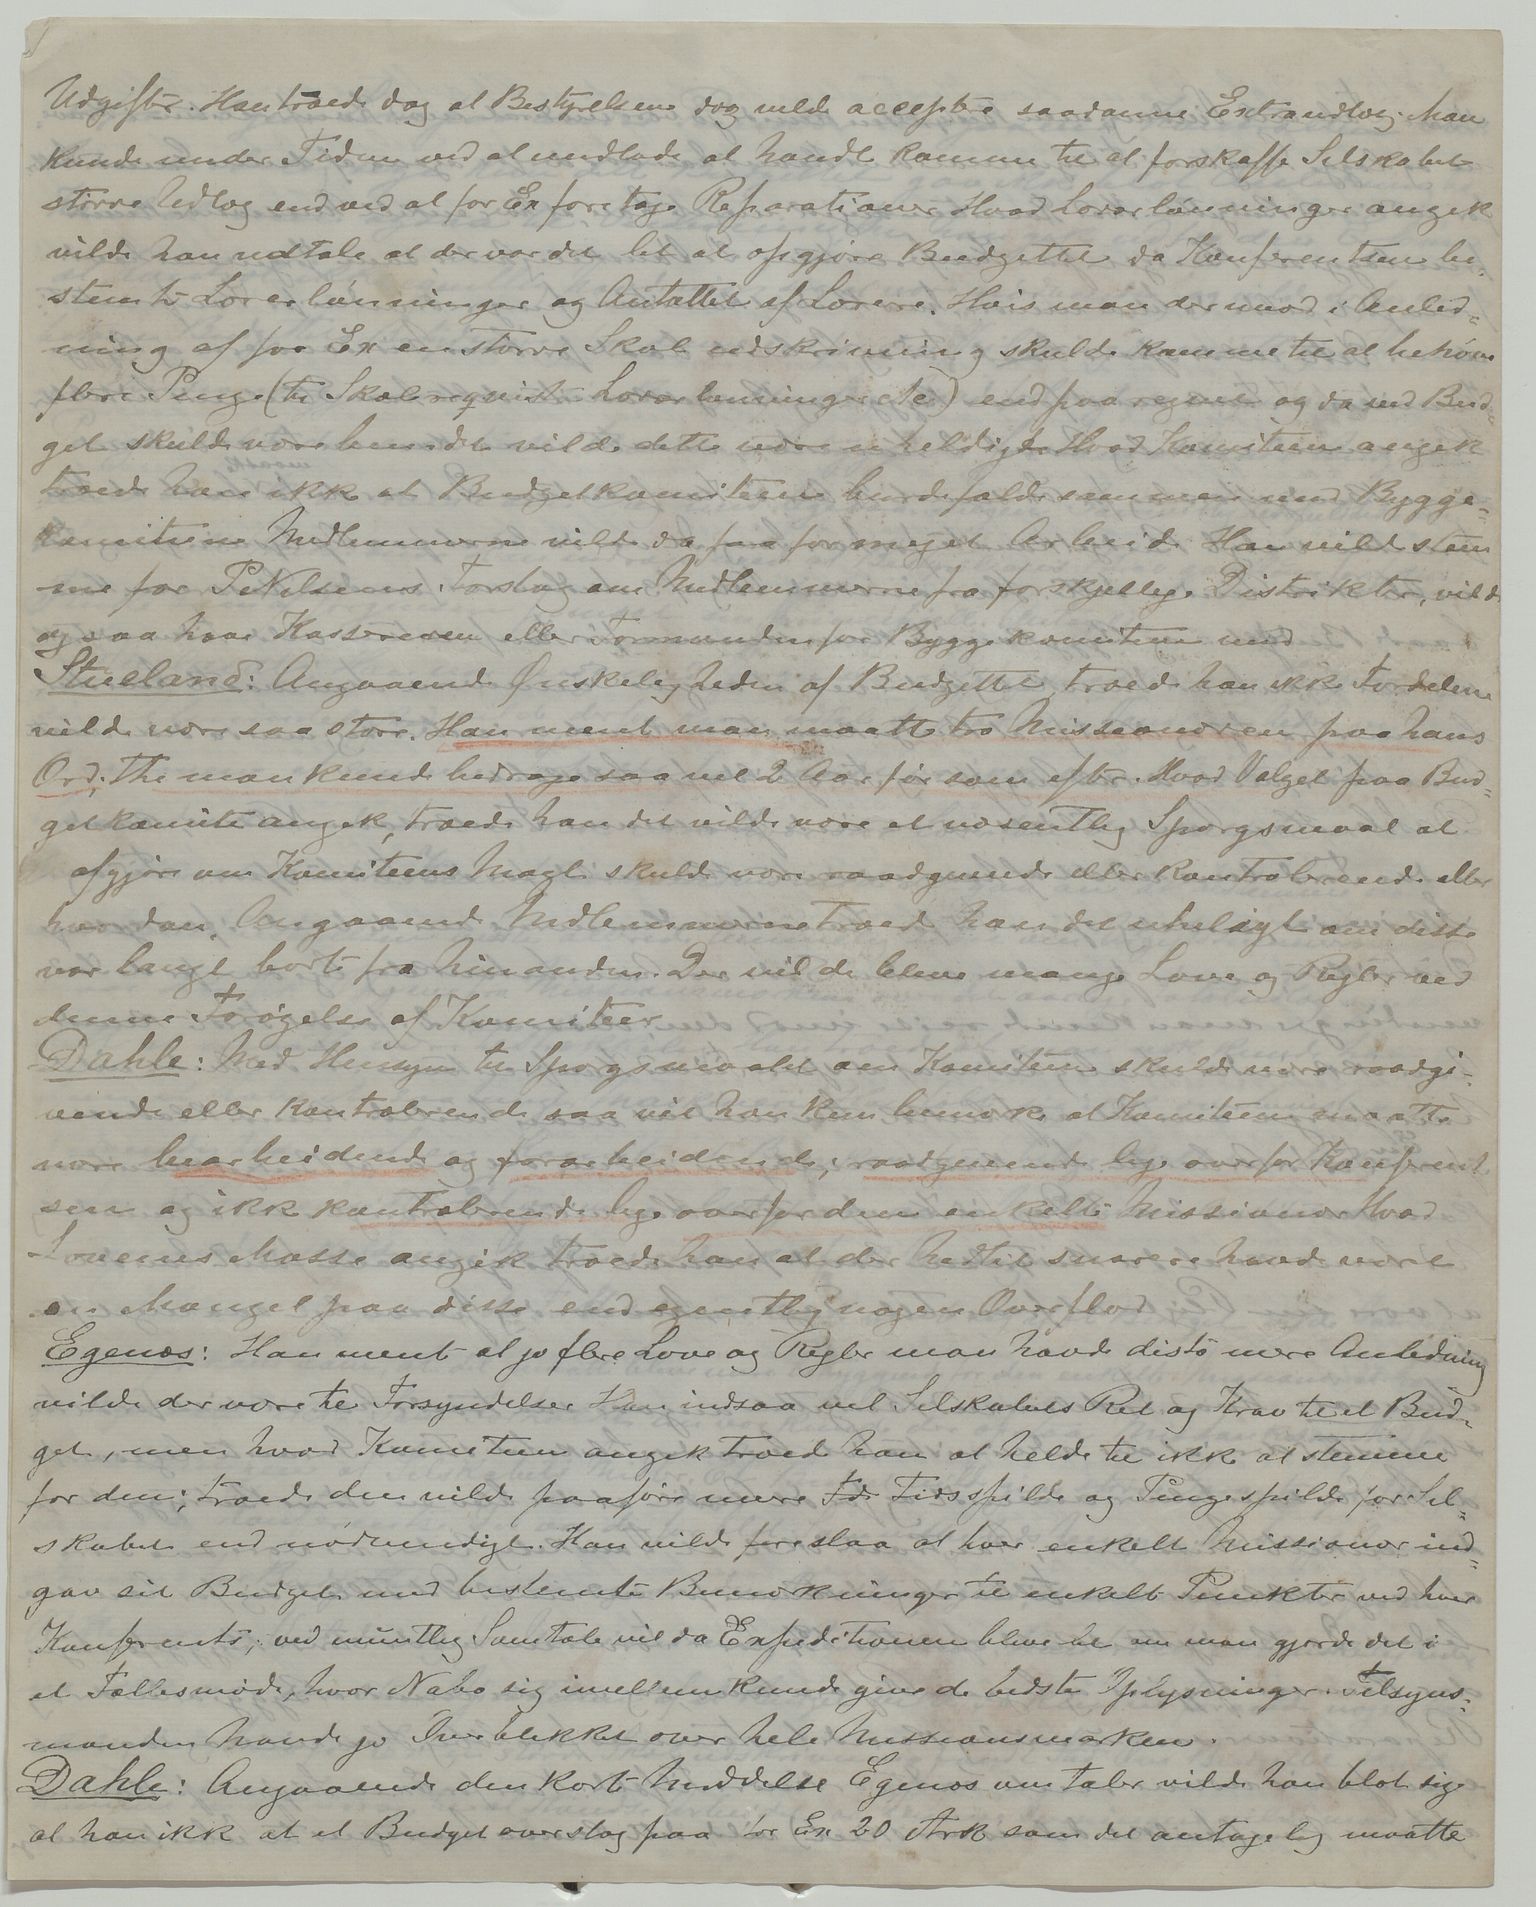 Udgifter. Han troede dog at Bestyrelsen dog vilde acceptere saadanne Extraudlæg. Man
kunde under Tiden ved at undlade at handle komme til at forskaffe Selskabet
større Udlæg end ved at for Ex foretage Reparationer Hvad Lærerlønninger angik
vilde han udtale at der var det let at opgjøre Budgettet da Konferentsen be-
stemte Lærerlønninger og Antallet af Lærere. Hvis man dermod i Anled-
ning af for Ex en større Skoleudskrivning skulde komme til at behøve
flere Penge (til Skolereqvisit Lærerlønninger etc) end paaregnet og da ved Bud-
get skulde være bundet vilde dette være uheldigt. Hvad Komiteen angik
troede han ikke at Budgetkomiteen burde falde sammen med Bygge-
komiteen Medlemmerne vilde da faa formeget Arbeide Han vilde stem
me for P Nilsens Forslag om Medlemmerne fra forskjellige Distrikter, vilde
ogsaa have Kassereren eller Formanden for Byggekomiteen med
Stueland: Angaaende Ønskeligheden af Budgettet troede han ikke Fordelene
vilde være saa store. Han mente man maatte tro Missionæren paa hans
Ord; Thi man kunde bedrage saa vel 2 Aar før som efter. Hvad Valget paa Bud-
getkomite angik, troede han det vilde være et væsentlig Spørgsmaal at
afgjøre om Komiteens Magt skulde være raadgivende eller kontrolerende eller
hvordan. Angaaende Medlemmerne troede han det uheldigt om disse
var langt borte fra hinanden. Der vilde blive mange Love og Regler ved
denne Forøgelse af Komiteer
Dahle: Med Hensyn til Spørgsmaalet om Komiteen skulde være raadgi-
vende eller kontrolerende saa vil han kun bemærke at Komiteen maatte
være bearbeidende og forarbeidende, raadgivende lige overfor Konferent
sen og ikke kontrolerende lige overfor den enkelte Missionær Hvad
Lovenes Masse angik troede han at der hidtil snarere havde været
en Mangel paa disse end egentlig nogen Overflod
Egenæs: Han mente at jo flere Love og Regler man havde disto mere Anledning
vilde der være til Forsyndelser Han indsaa vel Selskabets Ret og Krav til et Bud-
get, men hvad Komiteen angik troede han at helde til ikke at stemme
for den; troede den vilde paaføre mere Tidsspilde og Pengespilde for Sel-
skabet end nødvendigt. Han vilde foreslaa at hver enkelt Missionær ind-
gav sit Budget med bestemte Bemærkninger til enkelte Punkter ved hver
Konferents; ved muntlig Samtale vil da Expeditionen blive let om man gjorde det i
et Fællesmøde, hvor Nabo sig imellem kunde give de bedste Oplysninger. Tilsyns-
manden havde jo Overblikket over hele Missionsmarken.
Dahle: Angaaende den korte Meddelse Egenæs omtaler vilde han blot sige
at han ikke at et Budgetoverslag paa for Ex 20 Ark som det antagelig maatte